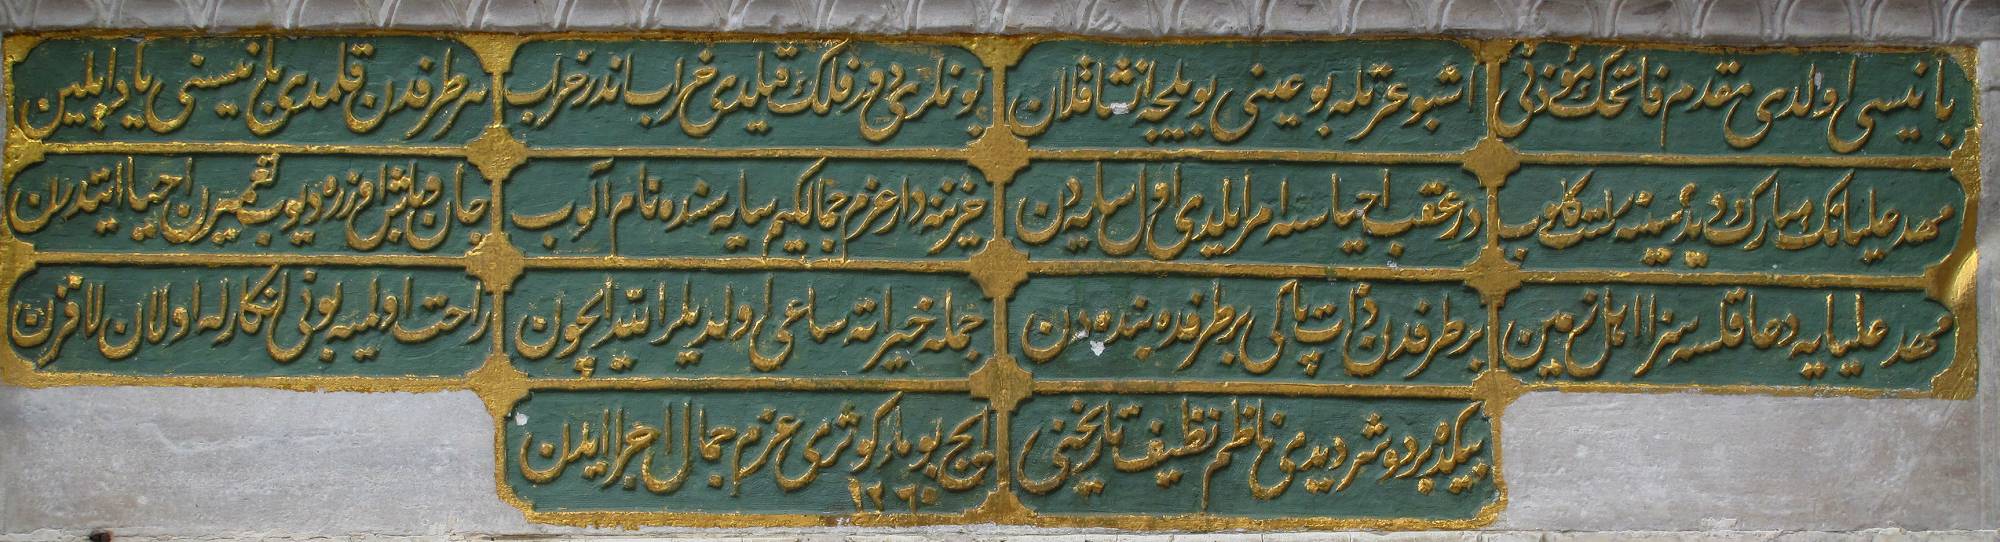 بانیسی اولدی مقدم فاتحك مؤذنی
اشبو عزتله بو عینی بویلجه انشا قلان
بونلری دور فلك قیلدی خراب اندر خراب
سر طرفدن قلمدی بانیسنی یاد ایلین
مهد علیانك مبارك
در عقب احیاسنه امر ایلدی اول سایه دن
خزینه دار عزم جمالكیم سایه سنده نام آلوب
جان وباش اوزره دیوب تعمیرن احیا ایتدرن
مهد علیایه دعا قلسه سزا اهل زمین
بر طرفدن ذات پاكی بر طرفده بنده دن
جمله خیراته ساعی اولدیلر الله ایچون
راحت اولمیه بونی انكارله اولان لا قرن
بیكده بر دوشر دیدی ناظم نظیف تاریخنی
ایچ بو ماء كوثری عزم جمال اجرا ایدن
١٢٦٠